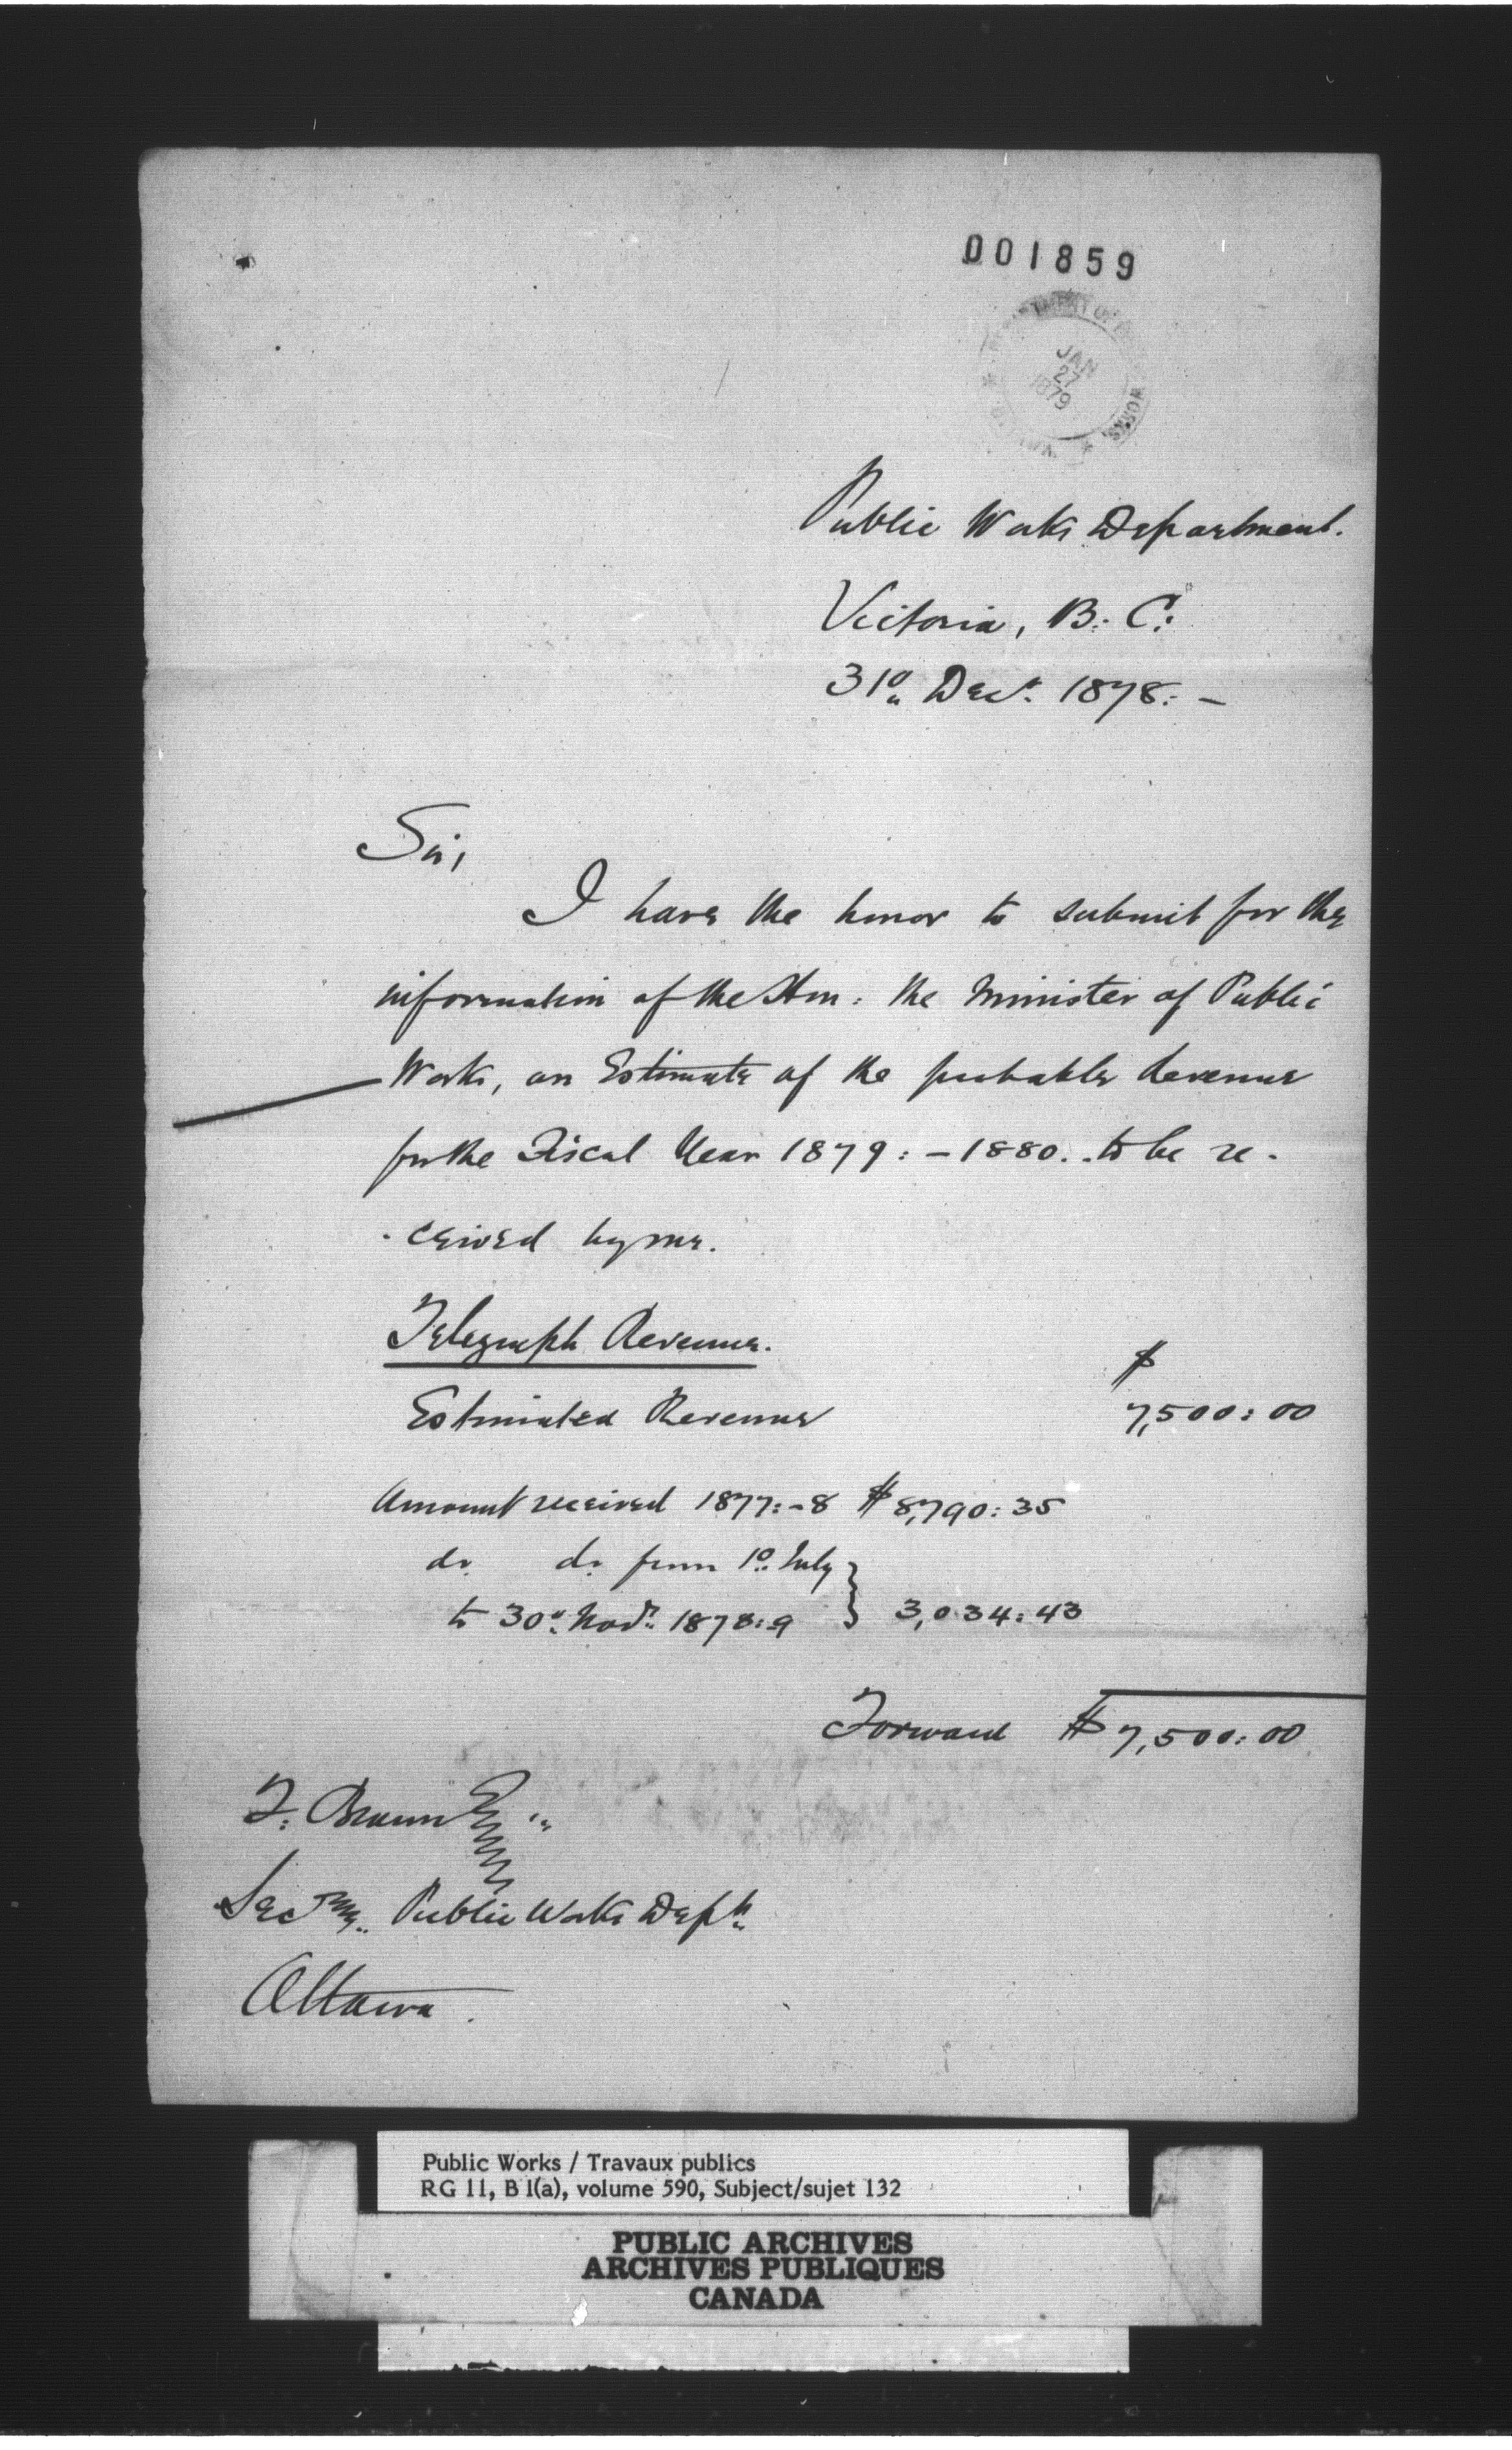 001859
DEPARTMENT OF PUBLIC WORKS
JAN
27
1879
Public Works Department.
Victoria, B. C:
31º Decr. 1878: -
Sir,
I have the honor to submit for the
information of the Hon: the Minister of Public
Works, an Estimate of the probable Revenue
for the Fiscal Year 1879: - 1880.. to be re-
-ceived by me.
Telegraph Revenue.
$
Estimated Revenue 7,500:00
Amount received 1877:-8 $8,790:35
do. do. from 1º July
to 30º Novr. 1878:9 } 3,034:43
Forward $7,500:00
F. Braun Esq
Secry. Public Works Dept.
Ottawa.
Public Works / Travaux publics
RG 11, B 1(a), volume 590, Subject/sujet 132
PUBLIC ARCHIVES
ARCHIVES PUBLIQUES
CANADA